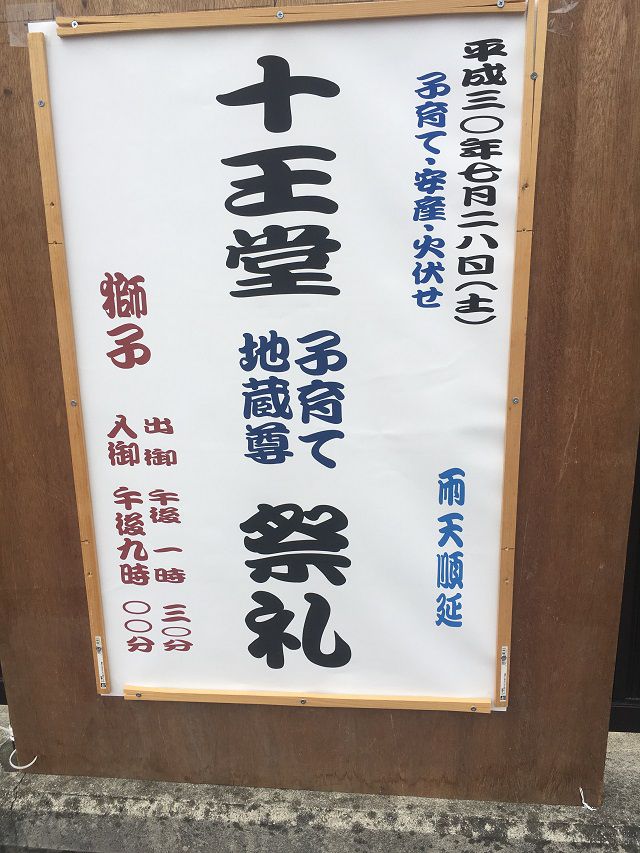 平成三〇年七月二八日(土)
子育て・安産・火伏せ
雨天順延
十王堂
子育て
地蔵尊
祭礼
獅子
出御 午後一時三〇分
入御 午後九時〇〇分